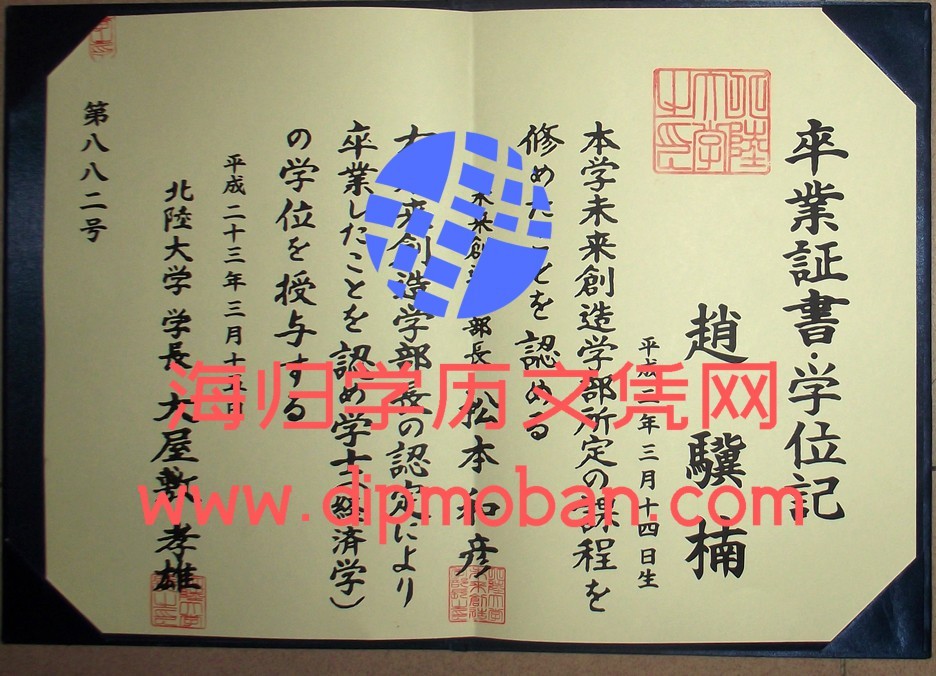 卒業証書・学位記
趙 驥 楠
平成二年三月十四日生
本学未来創造学部所定の課程を
修めたことを認める
未来創造学部長 松本和彦
本学未来創造学部長の認定により
卒業したことを認め学士(経済学)
の学位を授与する
平成二十三年三月十五日
北陸大学 学長 大屋敷 孝雄
第八八二号
海归学历文凭网
www.dipmoban.com